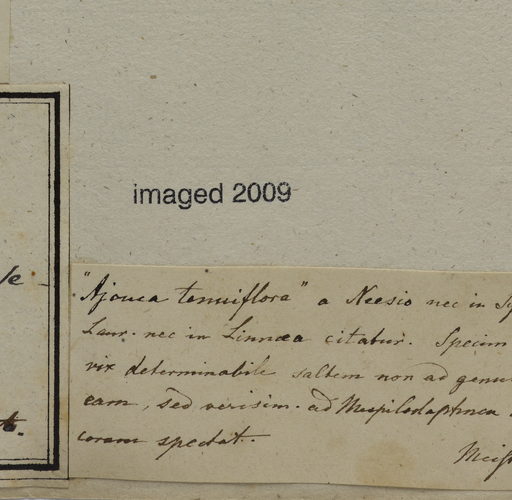 imaged 2009
"Ajouea tenuiflora" a Neesio nec in
Laur. nec in Linnaea citatur. Specim
vix determinabile saltem non ad genu
eam, sed verisim. ad Mespilodaphnea
coram spectat.